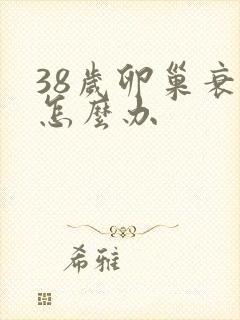 38歲卵巢衰
怎麼办
希雅